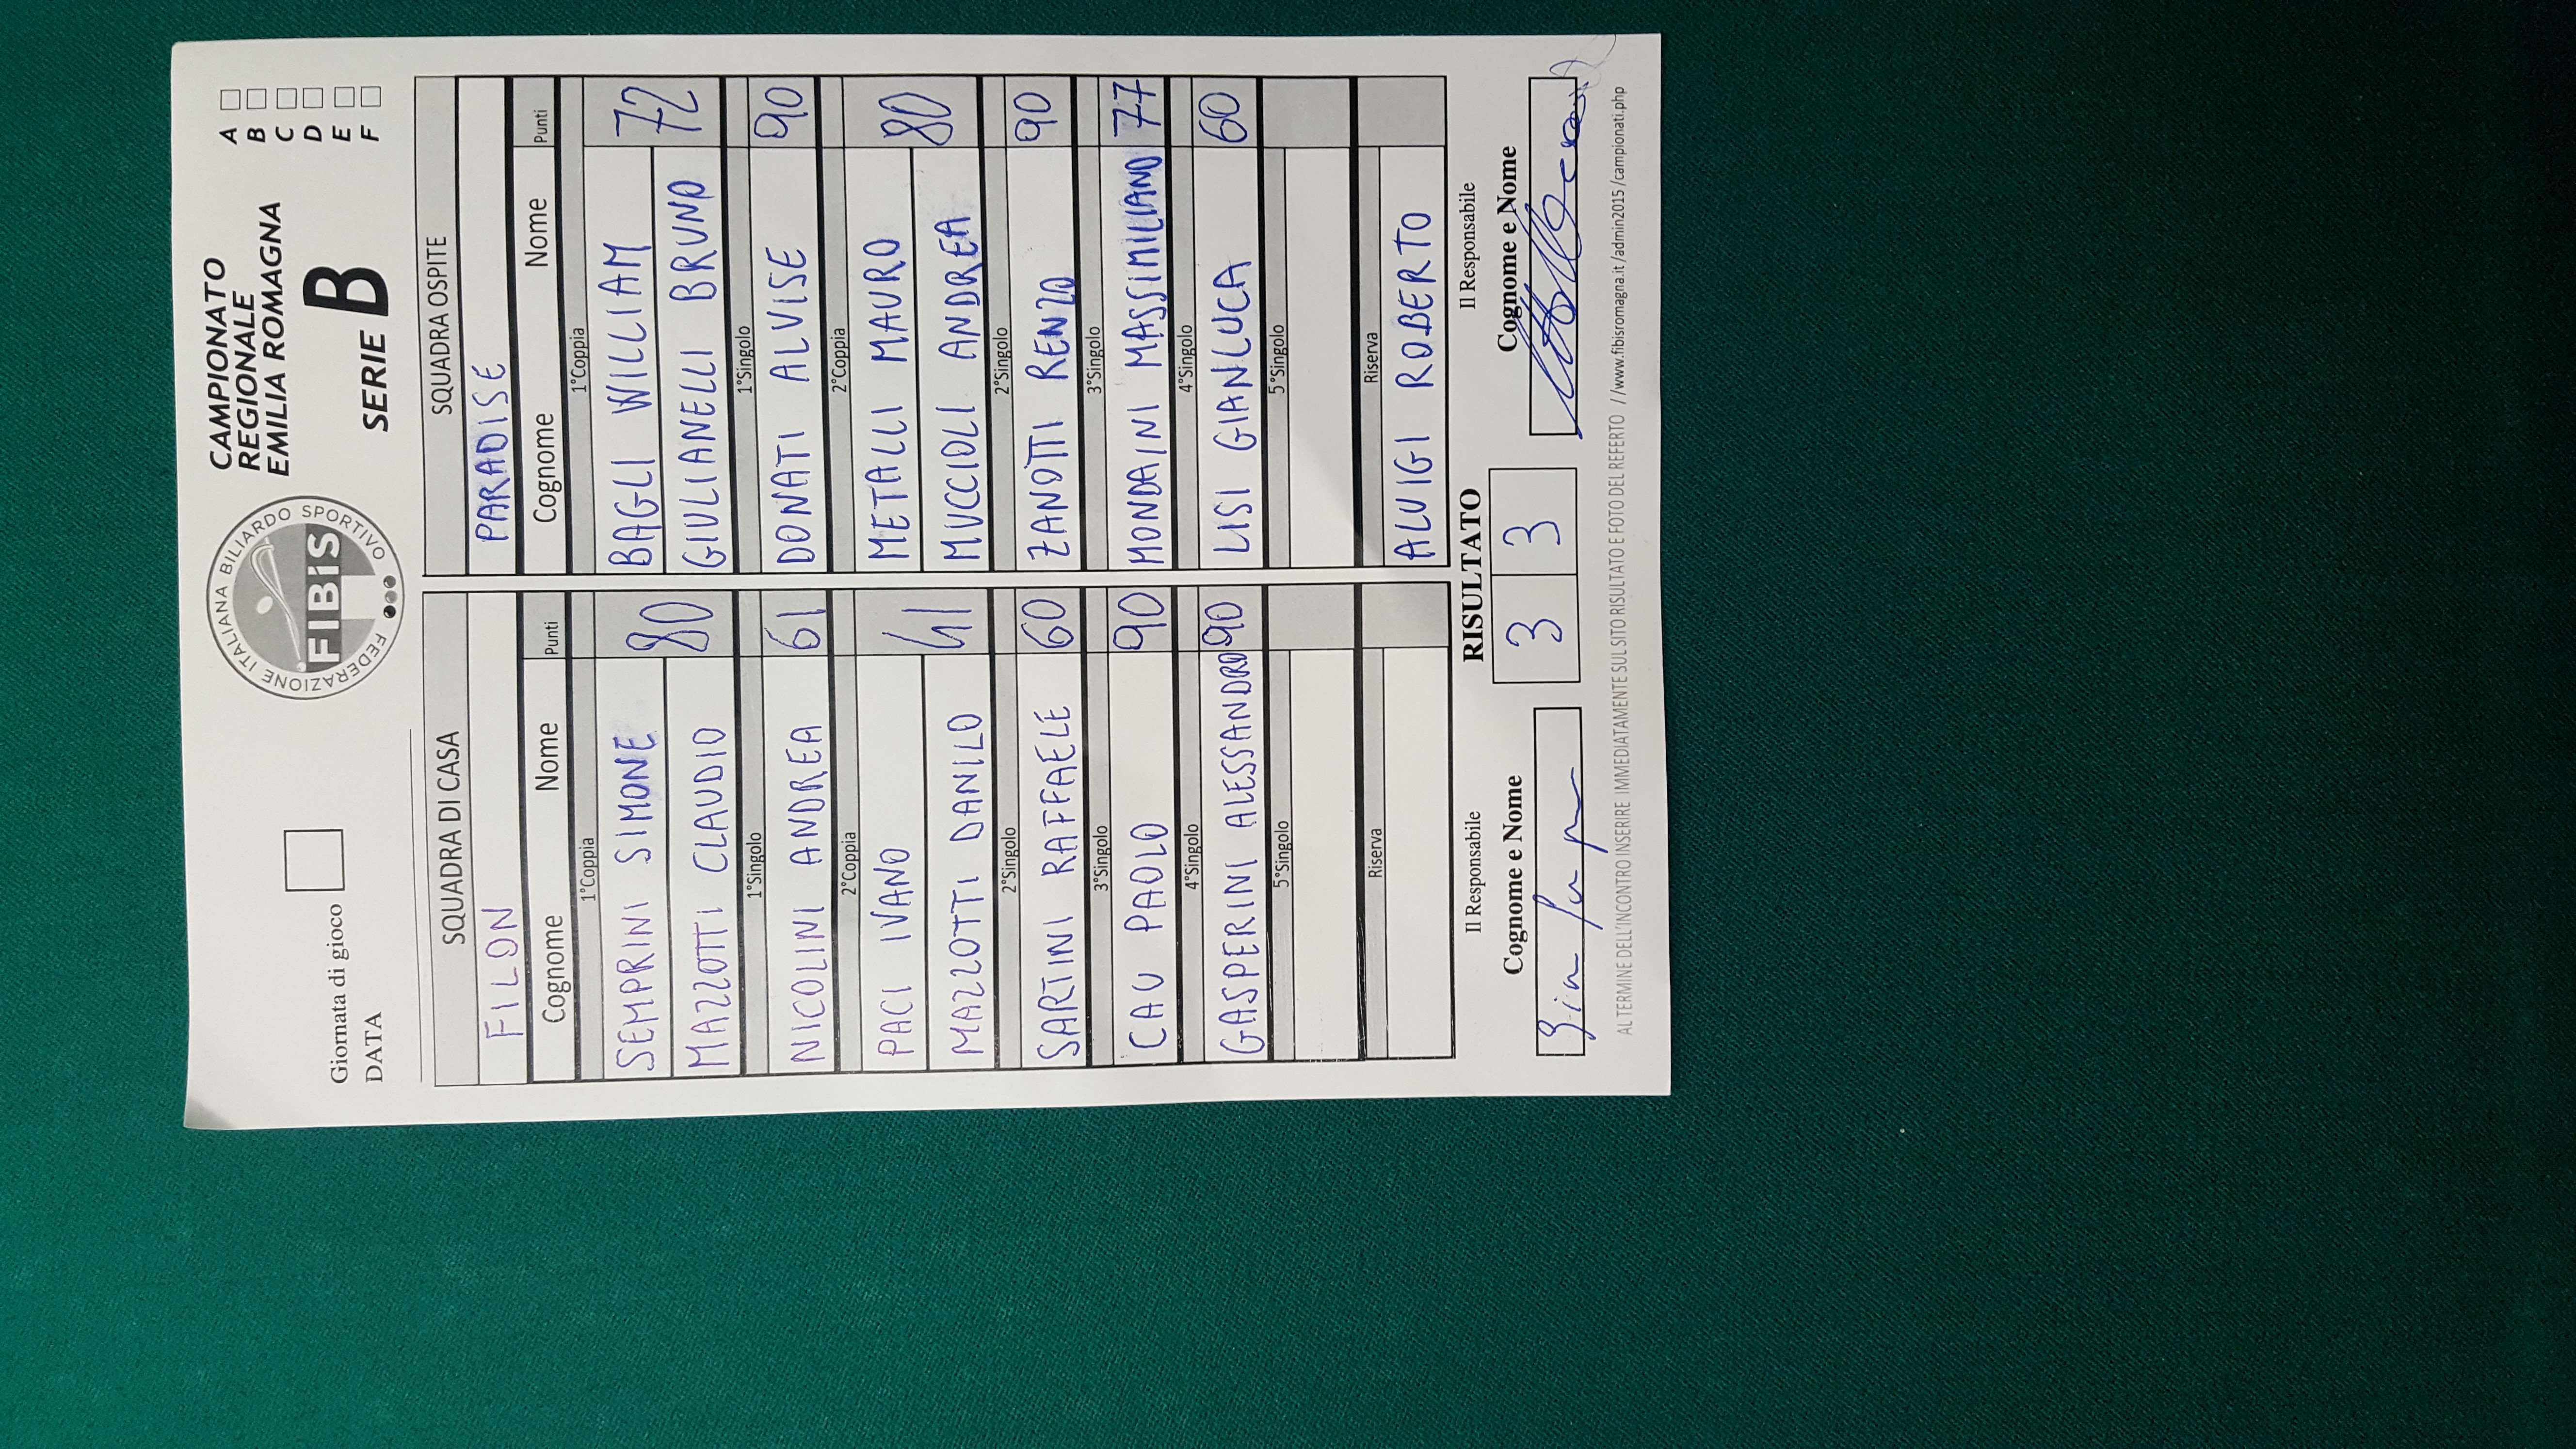 Giornata di gioco
DATA
FEDERAZIONE ITALIANA BILIARDO SPORTIVO
FIBiS
CAMPIONATO
REGIONALE
EMILIA ROMAGNA
SERIE B
A
B
C
D
E
F
SQUADRA DI CASA
FILON
Cognome Nome Punti
1°Coppia
SEMPRINI SIMONE 80
MAZZOTTI CLAUDIO
1°Singolo
NICOLINI ANDREA 61
2°Coppia
PACI IVANO 41
MAZZOTTI DANILO
2°Singolo
SARTINI RAFFAELE 60
3°Singolo
CAU PAOLO 90
4°Singolo
GASPERINI ALESSANDRO 90
5°Singolo
Riserva
SQUADRA OSPITE
PARADISE
Cognome Nome Punti
1°Coppia
BAGLI WILLIAM 72
GIULIANELLI BRUNO
1°Singolo
DONATI ALVISE 90
2°Coppia
METALLI MAURO 80
MUCCIOLI ANDREA
2°Singolo
ZANOTTI RENZO 90
3°Singolo
MONDAINI MASSIMILIANO 77
4°Singolo
LISI GIANLUCA 60
5°Singolo
Riserva
ALUIGI ROBERTO
Il Responsabile
Cognome e Nome
RISULTATO
3 3
Il Responsabile
Cognome e Nome
AL TERMINE DELL'INCONTRO INSERIRE IMMEDIATAMENTE SUL SITO RISULTATO E FOTO DEL REFERTO //www.fibisromagna.it/admin2015/campionati.php